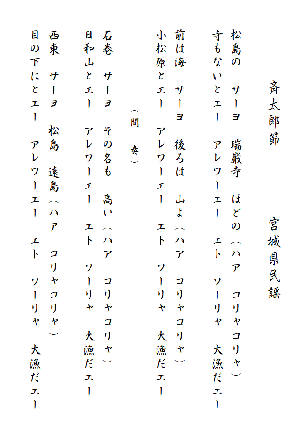 斉太郎節　　宮城県民謡
松島の　サーヨ　瑞巌寺　ほどの（ハア　コリャコリャ）
寺もないとエー　アレワーエー　エト　ソーリャ　大漁だエー
前は海　サーヨ　後ろは　山よ（ハア　コリャコリャ）
小松原とエー　アレワーエー　エト　ソーリャ　大漁だエー
（間　奏）
石巻　サーヨ　その名も　高い（ハア　コリャコリャ）
日和山とエー　アレワーエー　エト　ソーリャ　大漁だエー
西東　サーヨ　松島　遠島（ハア　コリャコリャ）
目の下にとエー　アレワーエー　エト　ソーリャ　大漁だエー